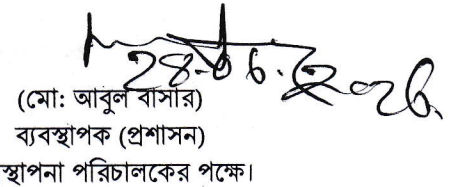 (মো: আবুল বাসার)
ব্যবস্থাপক (প্রশাসন)
স্থাপনা পরিচালকের পক্ষে।